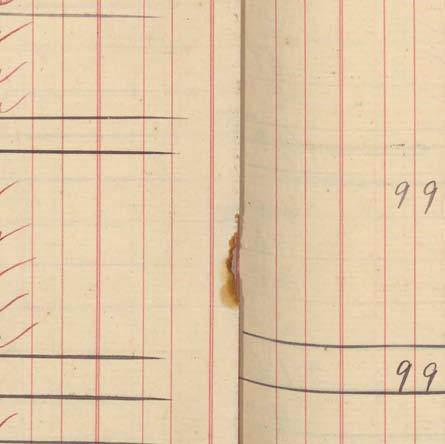 99
99